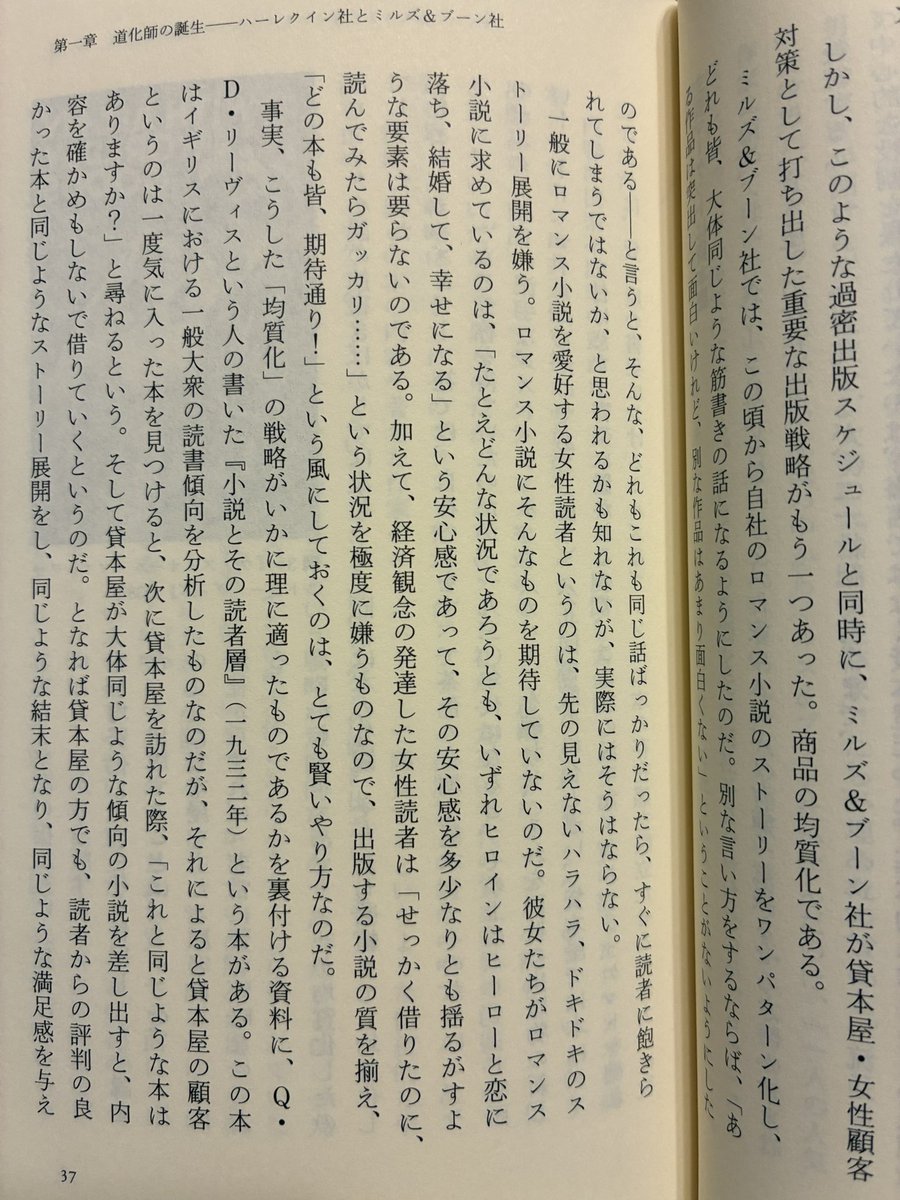 しかし、このような過密出版スケジュールと同時に、ミルズ&ブーン社が貸本屋・女性顧客
対策として打ち出した重要な出版戦略がもう一つあった。商品の均質化である。
ミルズ&ブーン社では、この頃から自社のロマンス小説のストーリーをワンパターン化し、
どれも皆、大体同じような筋書きの話になるようにしたのだ。別な言い方をするならば、「あ
る作品は突出して面白いけれど、別な作品はあまり面白くない」ということがないようにした
第一章 道化師の誕生――ハーレクイン社とミルズ&ブーン社
のである――と言うと、そんな、どれもこれも同じ話ばっかりだったら、すぐに読者に飽きら
れてしまうではないか、と思われるかも知れないが、実際にはそうはならない。
一般にロマンス小説を愛好する女性読者というのは、先の見えないハラハラ、ドキドキのス
トーリー展開を嫌う。ロマンス小説にそんなものを期待していないのだ。彼女たちがロマンス
小説に求めているのは、「たとえどんな状況であろうとも、いずれヒロインはヒーローと恋に
落ち、結婚して、幸せになる」という安心感であって、その安心感を多少なりとも揺るがすよ
うな要素は要らないのである。加えて、経済観念の発達した女性読者は「せっかく借りたのに、
読んでみたらガッカリ……」という状況を極度に嫌うものなので、出版する小説の質を揃え、
「どの本も皆、期待通り!」という風にしておくのは、とても賢いやり方なのだ。
事実、こうした「均質化」の戦略がいかに理に適ったものであるかを裏付ける資料に、Q・
D・リーヴィスという人の書いた『小説とその読者層』(一九三二年)という本がある。この本
はイギリスにおける一般大衆の読書傾向を分析したものなのだが、それによると貸本屋の顧客
というのは一度気に入った本を見つけると、次に貸本屋を訪れた際、「これと同じような本は
ありますか?」と尋ねるという。そして貸本屋が大体同じような傾向の小説を差し出すと、内
容を確かめもしないで借りていくというのだ。となれば貸本屋の方でも、読者からの評判の良
かった本と同じようなストーリー展開をし、同じような結末となり、同じような満足感を与え
37